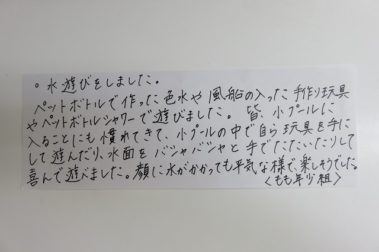 ○ 水遊びをしました。
ペットボトルで作った色水や風船の入った手作り玩具
やペットボトルシャワーで遊びました。皆、小プールに
入ることにも慣れてきて、小プールの中で自ら玩具を手に
して遊んだり、水面をバシャバシャと手でたたいたりして
喜んで遊べました。顔に水がかかっても平気な様で、楽しそうでした。
〈もも年少組〉